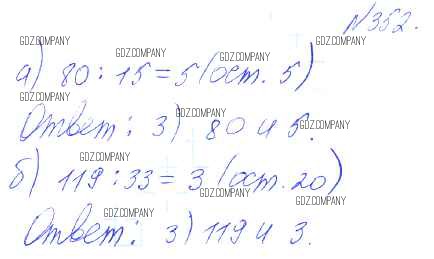 №352.
GDZ.COMPANY GDZ.COMPANY GDZ.COMPANY GDZ.COMPANY
а) 80 : 15 = 5 (ост. 5)
GDZ.COMPANY GDZ.COMPANY GDZ.COMPANY
Ответ: 3) 80 и 5.
GDZ.COMPANY
б) 119 : 33 = 3 (ост. 20)
GDZ.COMPANY GDZ.COMPANY GDZ.COMPANY
Ответ: 3) 119 и 3.